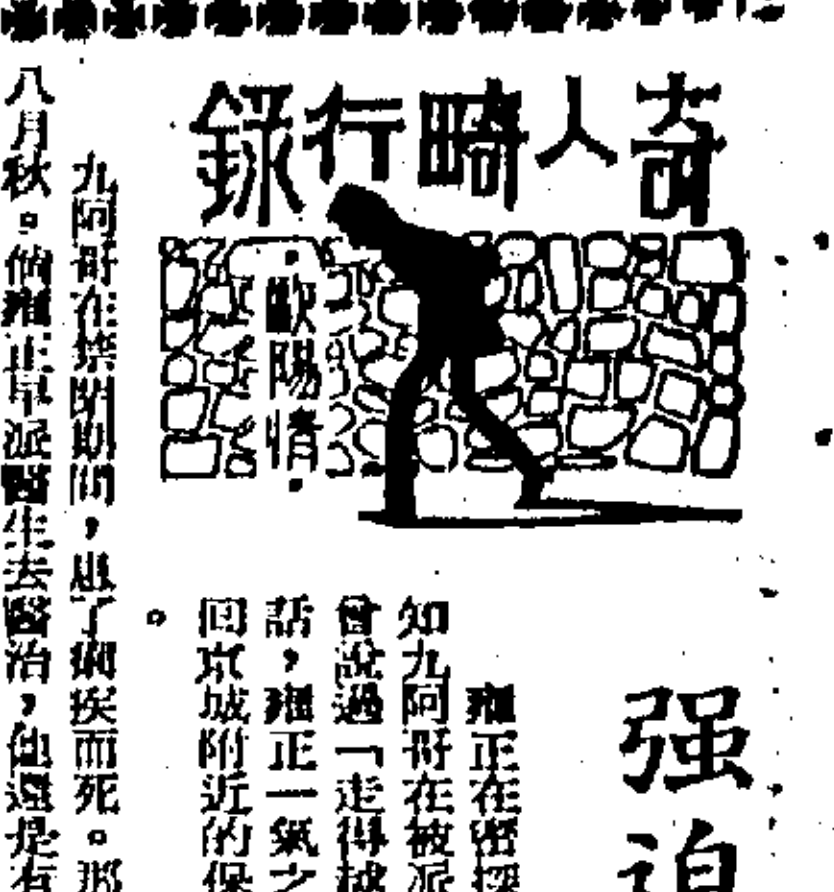 奇人畸行錄
·歐陽情·
强迫
雍正在密探
知九阿哥在被派
曾說過「走得越
話，雍正一氣之
回京城附近的保
。
九阿哥在禁閉期間，患了痢疾而死。那
八月秋。倘雍正早派醫生去醫治，他還是有